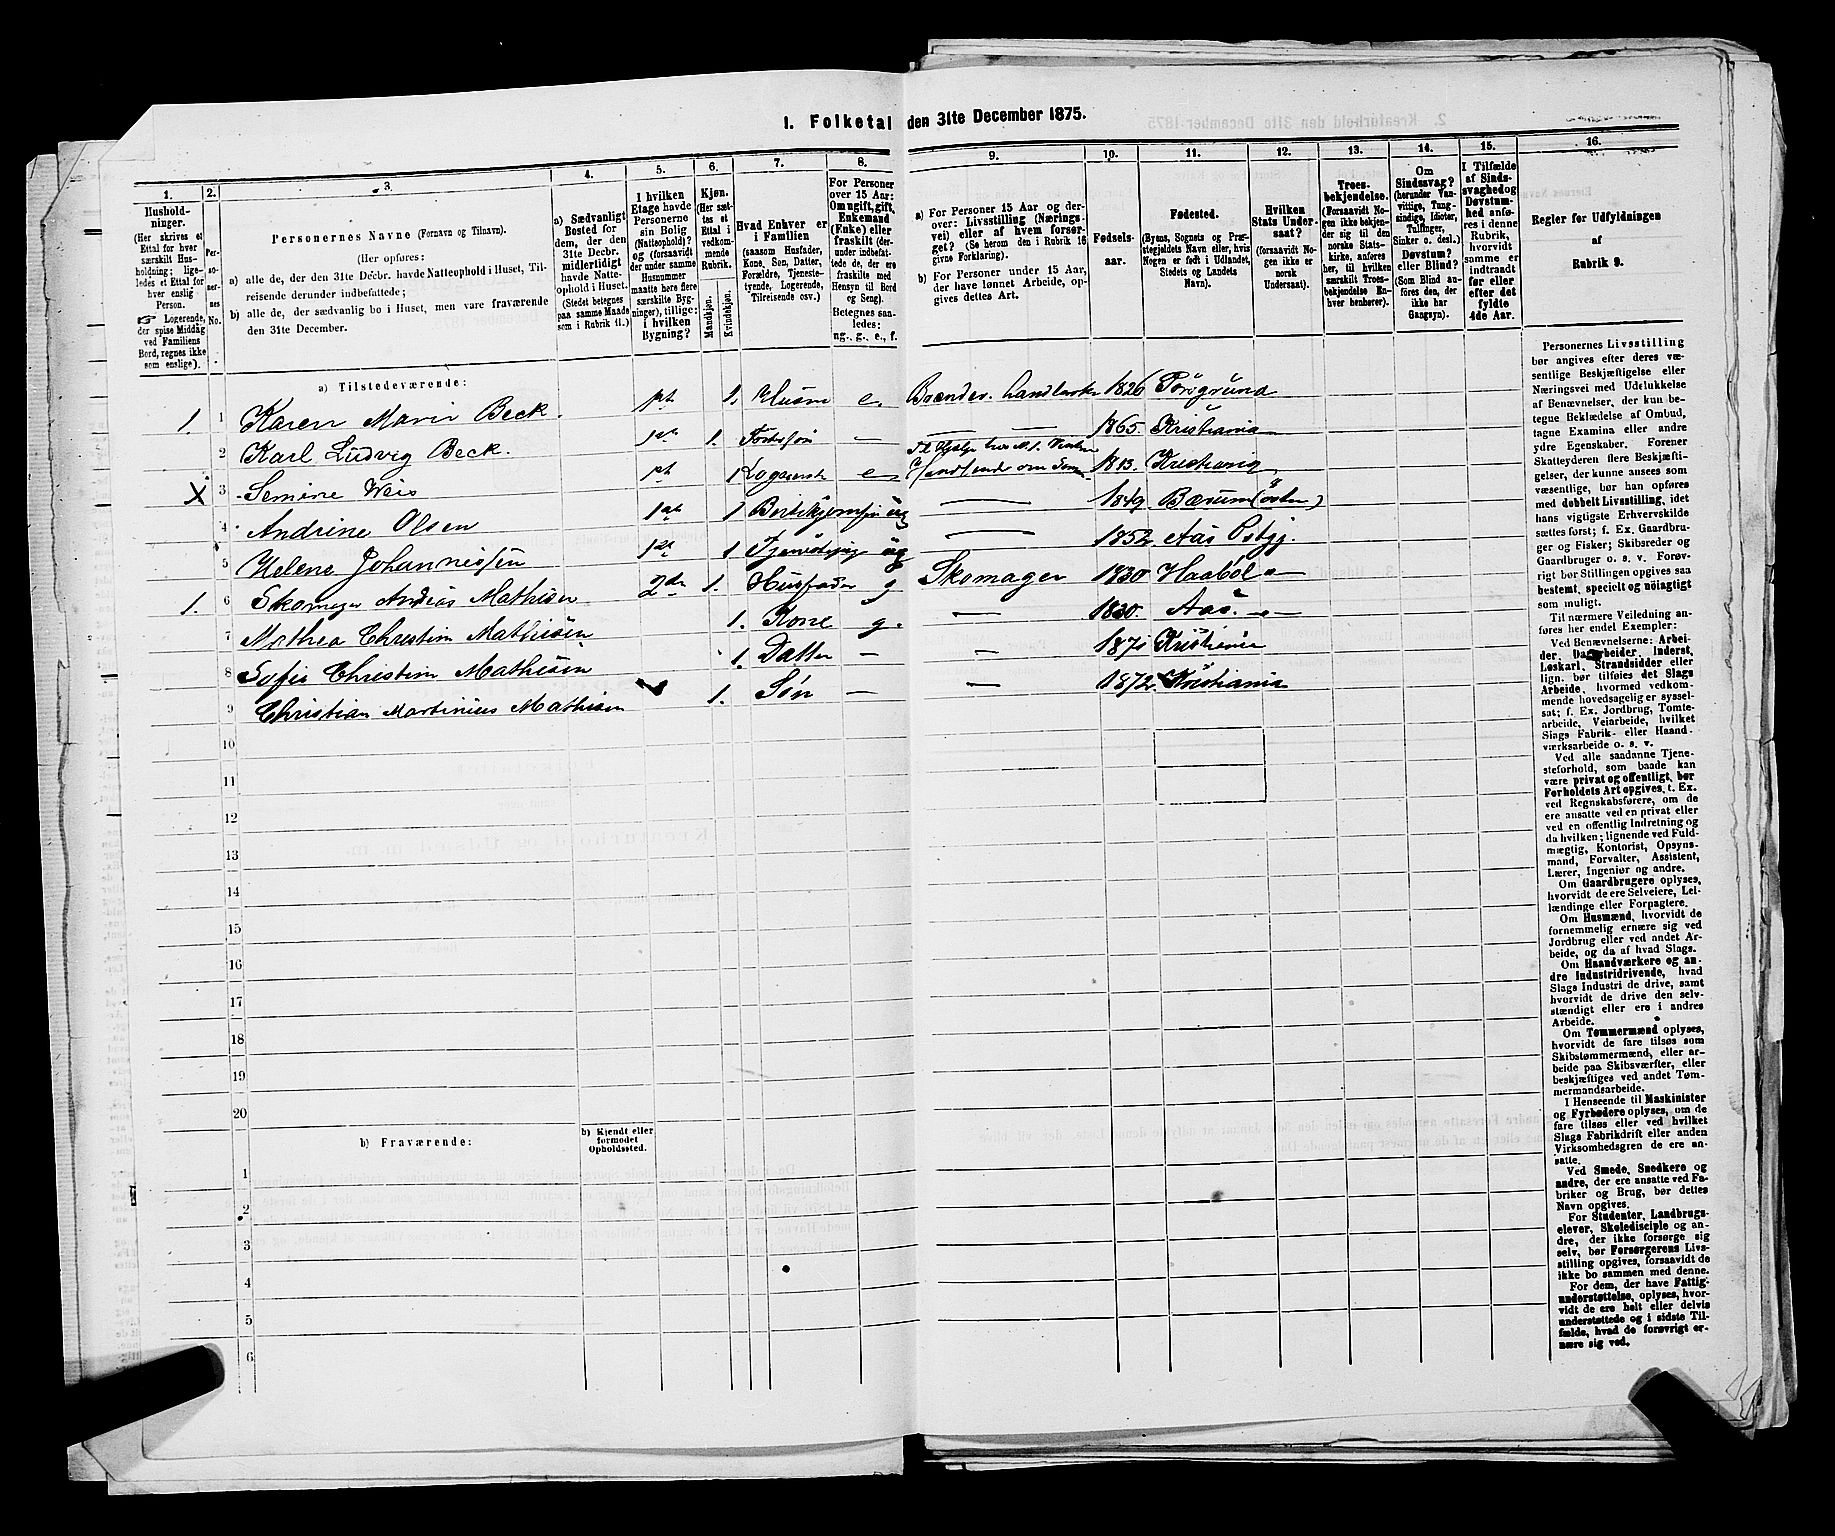 I. Folketal den 31te December 1875.
1. 2. 3. 4. 5. 6. 7. 8. 9. 10. 11. 12. 13. 14. 15. 16.
Husholdninger.
(Her skrives et
Ettal for hver
særskilt Husholdning; ligeledes et Ettal for
hver enslig
Person.
☞ Logerende,
der spise Middag
ved Familiens
Bord, regnes ikke
som enslige).
Personernes No.
Personernes Navne (Fornavn og Tilnavn).
(Her opføres:
a) alle de, der den 31te Decbr. havde Natteophold i Huset, Tilreisende derunder indbefattede;
b) alle de, der sædvanlig bo i Huset, men vare fraværende
den 31te December.
a) Sædvanligt
Bosted for
dem, der den
31te Decbr.
midlertidigt
havde Natteophold i Huset.
(Stedet betegnes
paa samme Maade
som i Rubrik 11.)
I hvilken
Etage havde
Personerne
sin Bolig
(Natteophold)?
og (forsaavidt
der under samme
Husnummer
maatte høre flere
særskilte Bygninger), tillige:
i hvilken
Bygning?
Kjøn.
(Her sættes et
Ettal i
vedkommende
Rubrik.
Mandkjøn.
Kvindekjøn.
Hvad Enhver er
i Familien
(saasom Husfader,
Kone, Søn, Datter,
Forældre, Tjenestetyende, Logerende,
Tilreisende osv.)
For Personer
over 15 Aar:
Om ugift, gift,
Enkemand
(Enke) eller
fraskilt (derunder indbefattede de, der ere
fraskilte med
Hensyn til Bord
og Seng).
Betegnes saaledes:
ug., g., e., f.
a) For Personer 15 Aar og derover: Livsstilling (Næringsvei) eller af hvem forsørget? (Se herom den i Rubrik 16
givne Forklaring).
b) For Personer under 15 Aar,
der have lønnet Arbeide, opgives dettes Art.
Fødselsaar.
Fødested.
(Byens, Sognets og Præstegjeldets Navn eller, hvis
Nogen er født i Udlandet,
Stedets og Landets
Navn).
Hvilken
Stats Undersaat?
(forsaavidt Nogen ikke er
norsk
Undersaat).
Troesbekjendelse.
(Forsaavidt Nogen ikke bekjender sig til den
norske Statskirke, anføres
her, til hvilken
særskilt Troesbekjendelse Enhver henhører).
Om
Sindssvag?
(herunder Vanvittige, Tungsindige, Idioter,
Tullinger,
Sinker o. desl.)
Døvstum?
eller Blind?
(Som Blind anføres den, der
ikke har
Gangsyn).
I Tilfælde
af Sindssvaghed og
Døvstumhed anføres i denne
Rubrik,
hvorvidt
samme er
indtraadt
før eller
efter det
fyldte
4de Aar.
Regler for Udfyldningen
af
Rubrik 9.
a) Tilstedeværende:
1. 1 Karen Marie Beck. 1st 1. Husm e. Brændev. Landhandl 1826 Porsgrund
2 Karl Ludvig Beck. 1st 1. Fostersøn — — 1865. Kristiania
X 3 Semine Weis 1st 1 Logerende e 1813. Kristiania
4 Andrine Olsen 1st 1 ug — 1849 Bærum (Østre)
5 Helene Johannessen 1st 1 ug — 1852 Aas
1. 6 Skomager Andreas Mathisen 2den 1. Husfader g Skomager 1830 Haabøl
7 Mathea Christine Mathiesen 1. Kone g. — 1830. Aas
8 Sofie Christine Mathisen 1. Datter — — 1871 Kristiania
9 Christian Martinius Mathisen 1. Søn — — 1872 Kristiania
10
11
12
13
14
15
16
17
18
19
20
b) Fraværende:
b) Kjendt eller
formodet
Opholdssted.
1
2
3
4
5
6
Personernes Livsstilling
bør angives efter deres væsentlige Beskjæftigelse eller
Næringsvei med Udelukkelse
af Benævnelser, der kun betegne Beklædelse af Ombud,
tagne Examina eller andre
ydre Egenskaber. Forener
Skatteyderen flere Beskjæftigelser, der kunne ansees som
væsentlige, bør han opføres
med dobbelt Livsstilling, idet
hans vigtigste Erhvervskilde
sættes først; f. Ex. Gaardbruger og Fisker; Skibsreder og
Gaardbruger o. s. v. Forøvrigt bør Stillingen opgives saa
bestemt, specielt og nøiagtigt
som muligt.
Til nærmere Veiledning anføres her endel Exempler:
Ved Benævnelserne: Arbeider, Dagarbeider, Inderst,
Løskarl, Strandsidder eller
lign. bør tilføies det Slags
Arbeide, hvormed vedkommende hovedsagelig er sysselsat; f. Ex. Jordbrug, Tomtearbeide, Veiarbeide, hvilket
Slags Fabrik- eller Haandværksarbeide o. s. v.
Ved alle saadanne Tjenesteforhold, som baade kan
være privat og offentligt, bør
Forholdets Art opgives, t. Ex.
ved Regnskabsførere, om de
ere ansatte ved en privat eller
ved en offentlig Indretning og
da hvilken; lignende ved Fuldmægtig, Kontorist, Opsynsmand, Forvalter, Assistent,
Lærer, Ingeniør og andre.
Om Gaardbrugere oplyses,
hvorvidt de ere Selveiere, Leilændinge eller Forpagtere.
Om Husmænd, hvorvidt de
fornemmelig ernære sig ved
Jordbrug eller ved andet Arbeide, og da af hvad Slags.
Om Haandværkere og andre Industridrivende, hvad
Slags Industri de drive, samt
hvorvidt de drive den selvstændigt eller ere i andres
Arbeide.
Om Tømmermænd oplyses,
hvorvidt de fare tilsøs som
Skibstømmermænd, eller arbeide paa Skibsværfter, eller
beskjæftiges ved andet Tømmermandsarbeide.
I Henseende til Maskinister
og Fyrbødere oplyses, om de
fare tilsøs eller ved hvilket
Slags Fabrikdrift eller anden
Virksomhedsgren de ere ansatte.
Ved Smede, Snedkere og
andre, der ere ansatte ved Fabriker og Brug, bør dettes
Navn opgives.
For Studenter, Landbrugselever, Skoledisciple og andre, der ikke forsørge sig
selv, bør Forsørgerens Livsstilling opgives, forsaavidt de
ikke bo sammen med denne.
For dem, der have Fattigunderstøttelse, oplyses, hvorvidt de ere helt eller delvis
understøttede og i sidste Tilfælde, hvad de forøvrigt ernære sig ved.